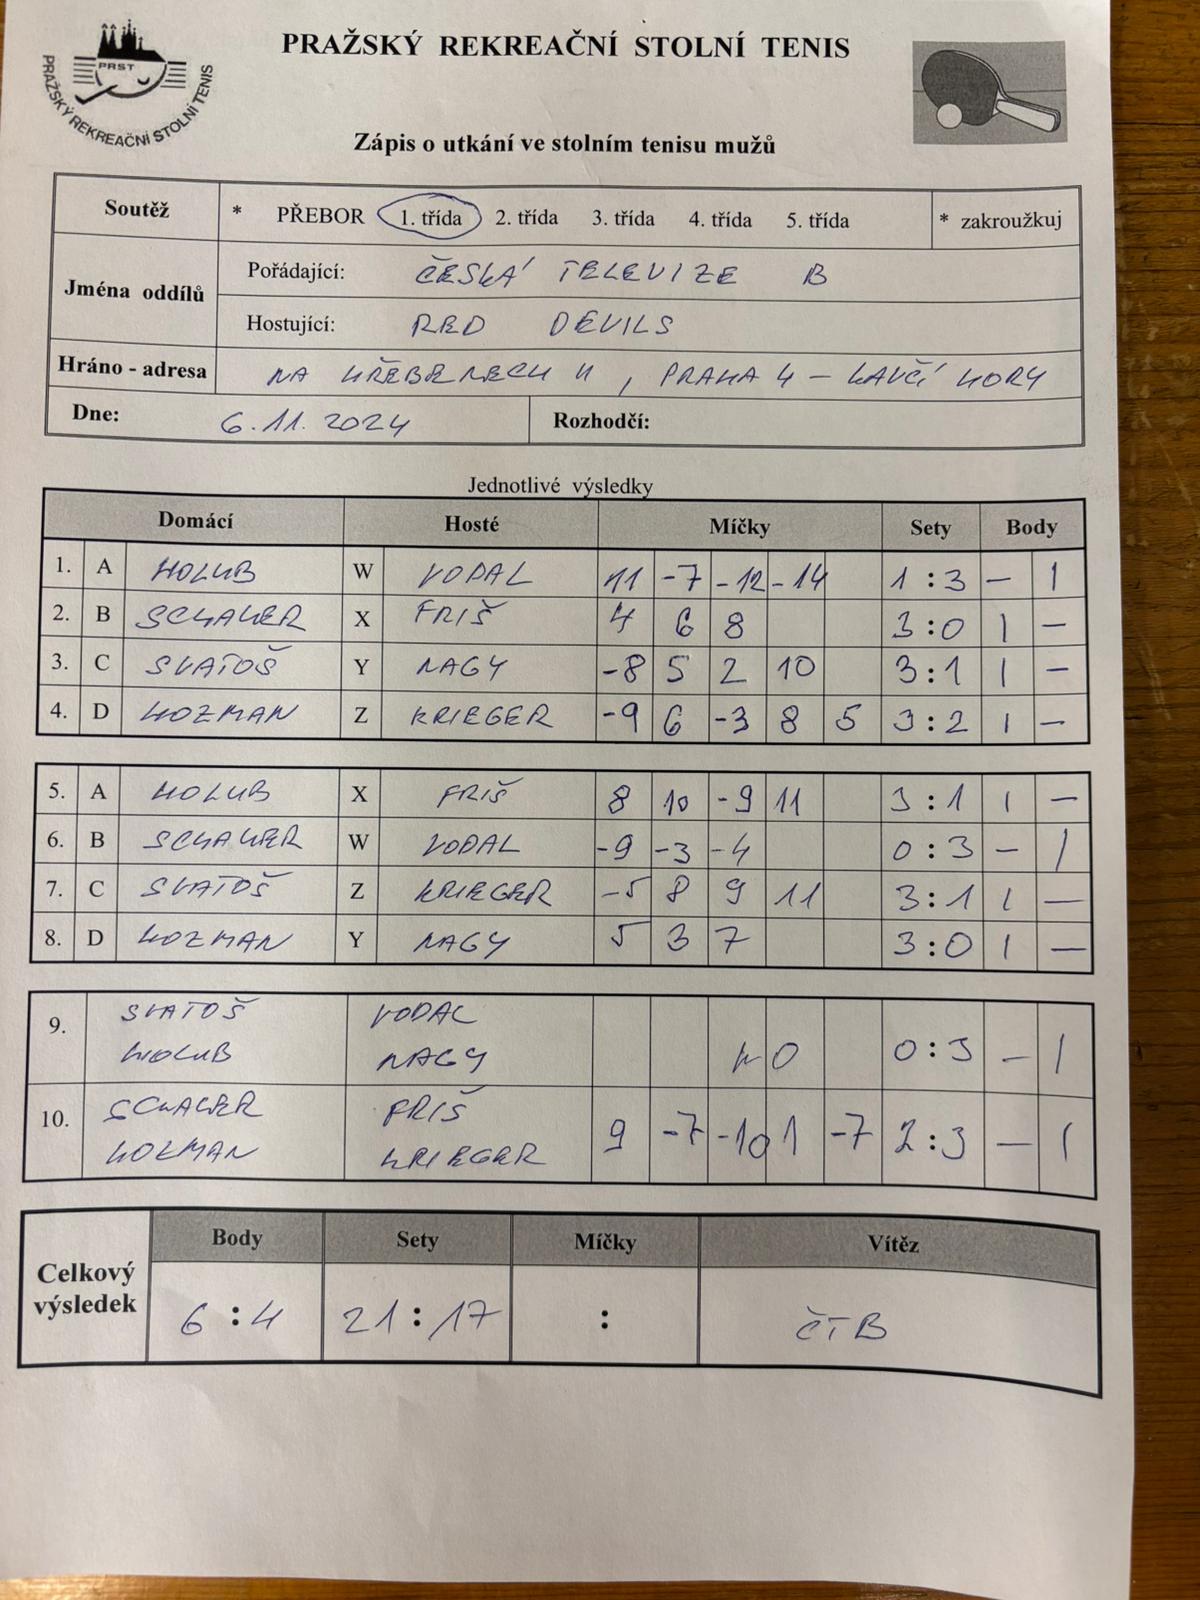 PRAŽSKÝ REKREAČNÍ STOLNÍ TENIS
PRST
PRAŽSKÝ REKREAČNÍ STOLNÍ TENIS
Zápis o utkání ve stolním tenisu mužů
Soutěž * PŘEBOR 1. třída 2. třída 3. třída 4. třída 5. třída * zakroužkuj
Jména oddílů
Pořádající: ČESKÁ TELEVIZE B
Hostující: RED DEVILS
Hráno - adresa NA HŘEBENECH II, PRAHA 4 – KAVČÍ HORY
Dne: 6.11.2024 Rozhodčí:
Jednotlivé výsledky
Domácí Hosté Míčky Sety Body
1. A HOLUB W VODAL 11 -7 -12 -14 1:3 – 1
2. B SCHAUER X FRIŠ 4 6 8 3:0 1 –
3. C SVATOŠ Y NAGY -8 5 2 10 3:1 1 –
4. D KOZMAN Z KRIEGER -9 6 -3 8 5 3:2 1 –
5. A HOLUB X FRIŠ 8 10 -9 11 3:1 1 –
6. B SCHAUER W VODAL -9 -3 -4 0:3 – 1
7. C SVATOŠ Z KRIEGER -5 8 9 11 3:1 1 –
8. D KOZMAN Y NAGY 5 3 7 3:0 1 –
SVATOŠ VODAL
9. HOLUB NAGY WO 0:3 – 1
SCHAUER FRIŠ
10. KOZMAN KRIEGER 9 -7 -10 1 -7 2:3 – 1
Body Sety Míčky Vítěz
Celkový
výsledek
6:4 21:17 : ČTB